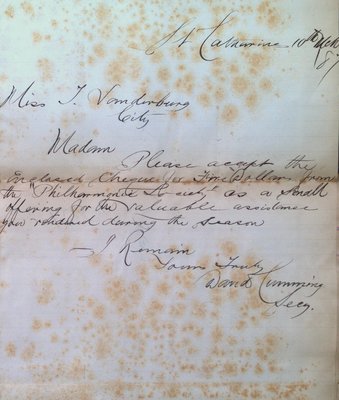 St Catharine 10th
/87
Miss J. Vanderburg
City
Madam
Please accept the
enclosed Cheque for Five Dollars from
the "Philharmonic Society" as a small
offering for the valuable assistance
you rendered during the season
I Remain
Yours Truly
David Cumming
Secy.